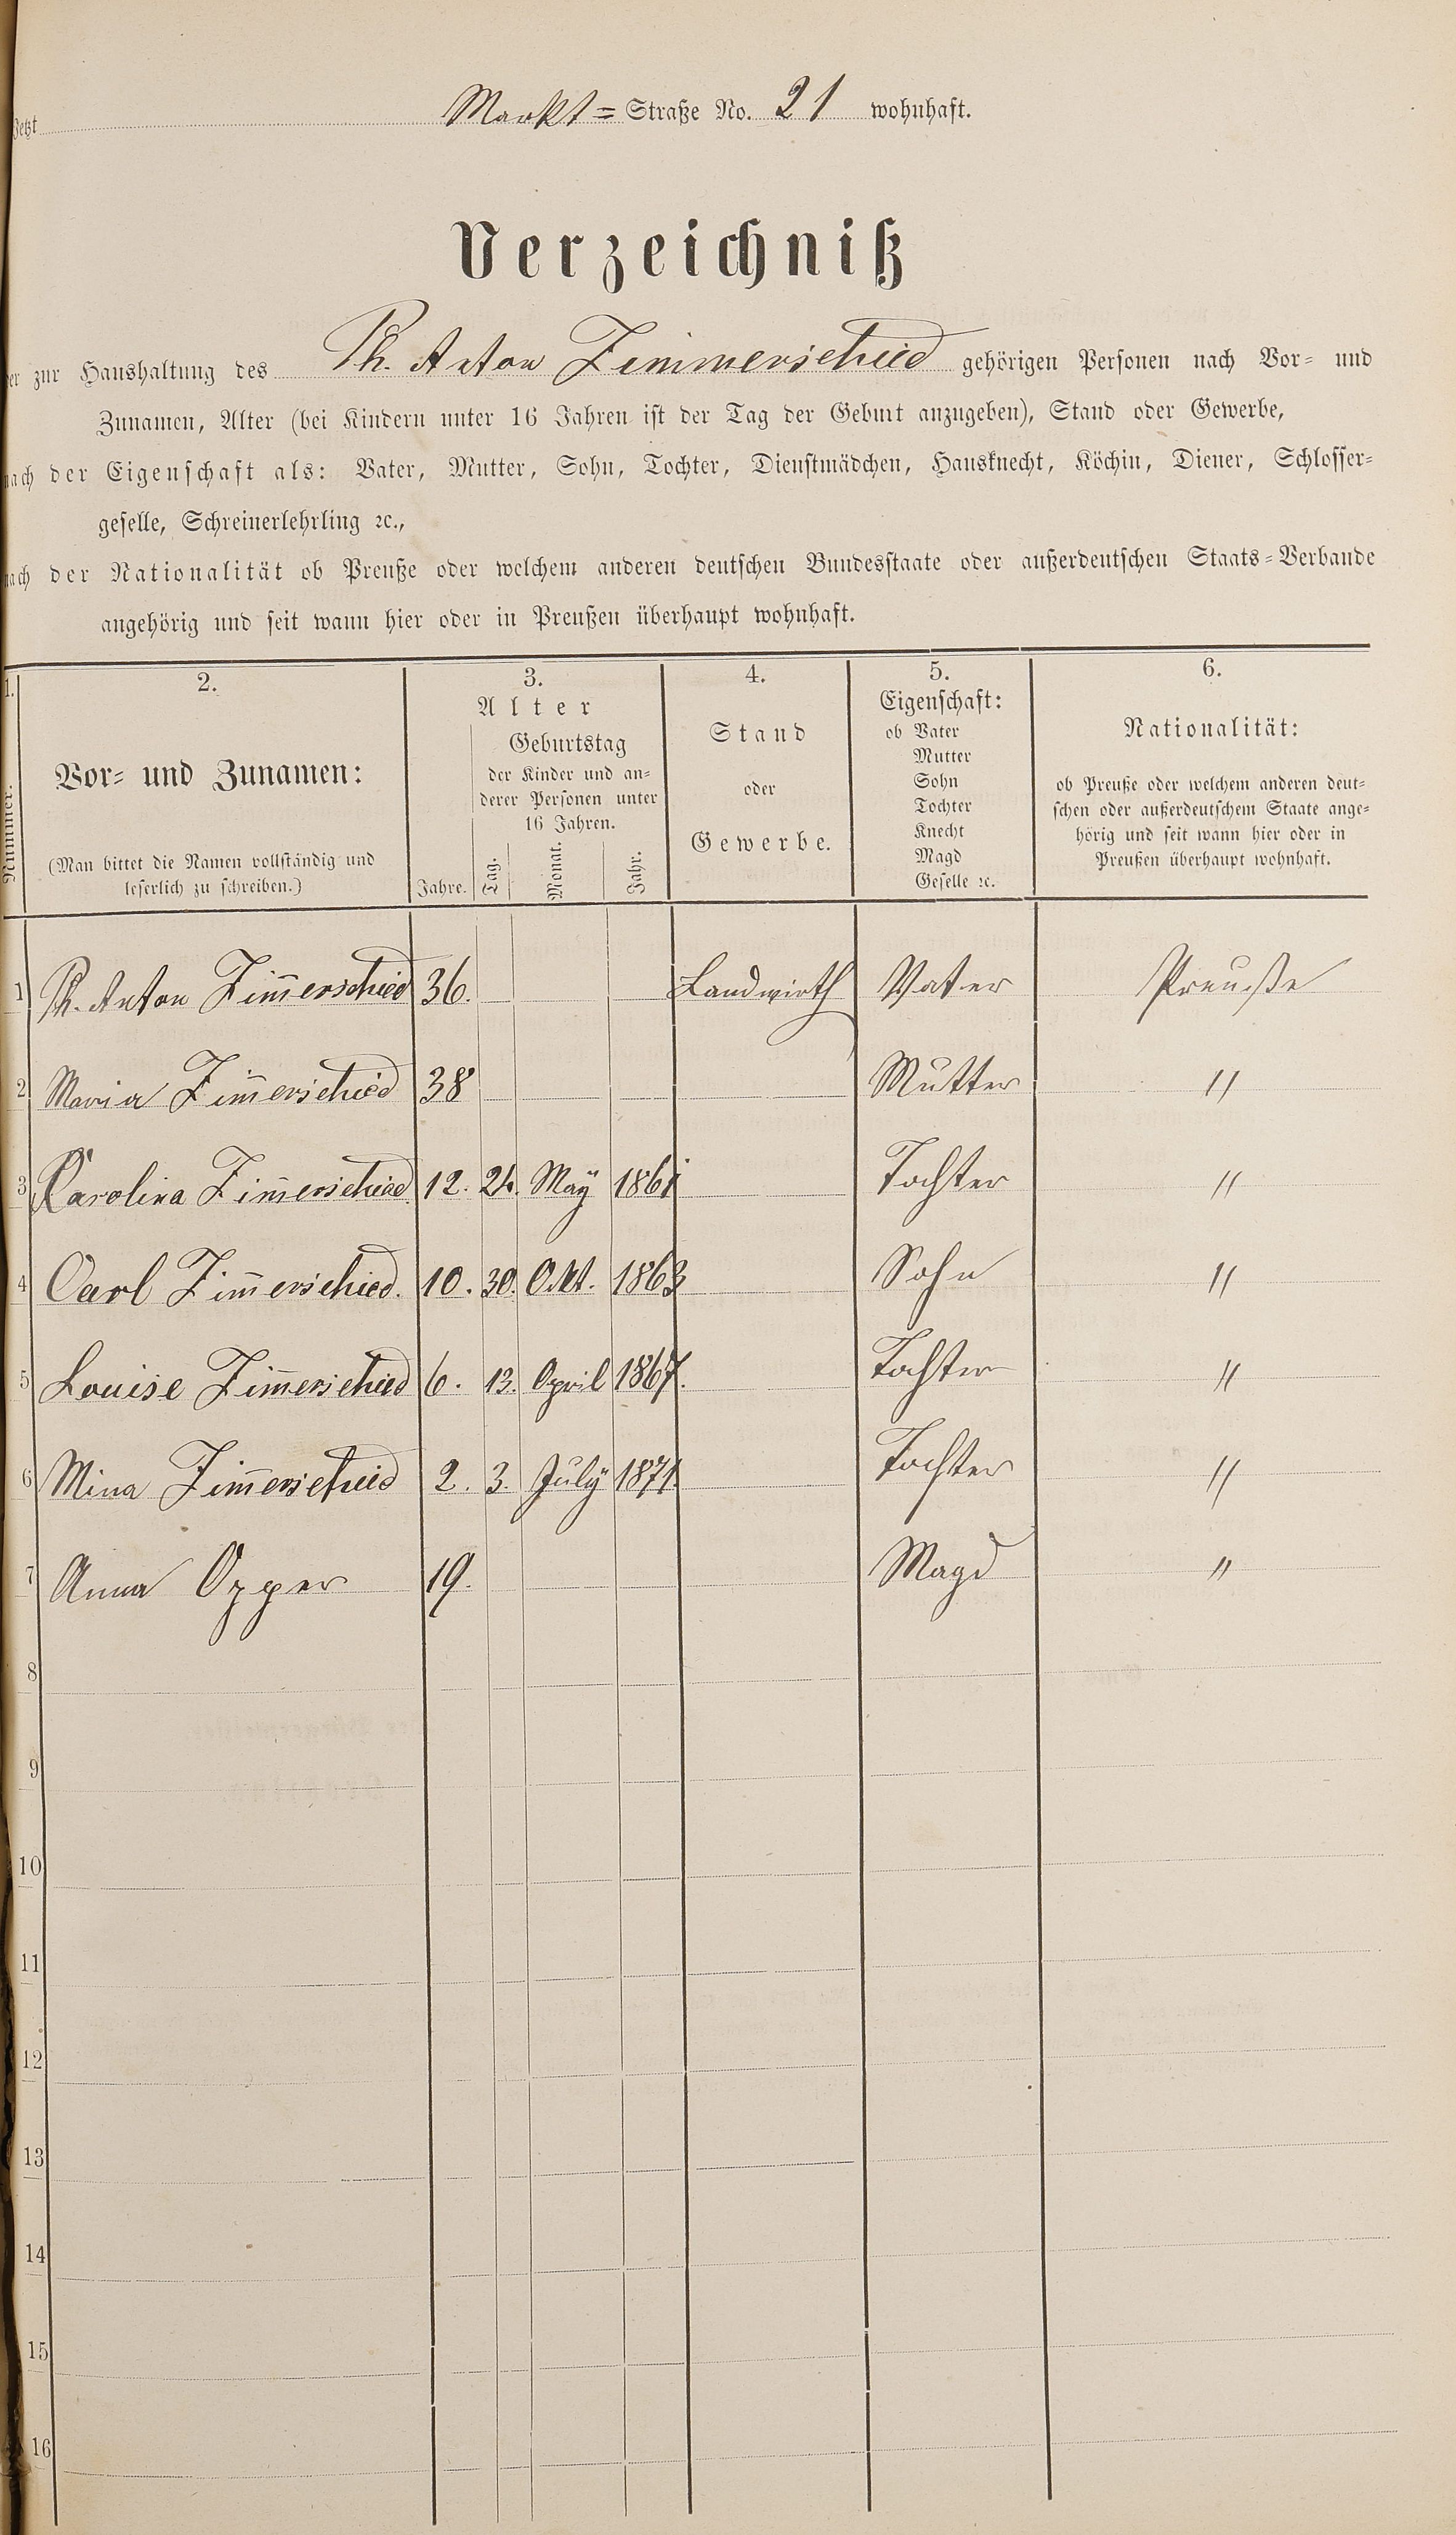 Jetzt Markt= Straße No. 21 wohnhaft.
Verzeichniß
der zur Haushaltung des Ph. Anton Zimmerschied gehörigen Personen nach Vor- und
Zunamen, Alter (bei Kindern unter 16 Jahren ist der Tag der Geburt anzugeben), Stand oder Gewerbe,
nach der Eigenschaft als: Vater, Mutter, Sohn, Tochter, Dienstmädchen, Hausknecht, Köchin, Diener, Schlosser-
geselle, Schreinerlehrling ꝛc.,
nach der Nationalität ob Preuße oder welchem anderen deutschen Bundesstaate oder außerdeutschen Staats-Verbande
angehörig und seit wann hier oder in Preußen überhaupt wohnhaft.
1. 2. 3. 4. 5. 6.
Nummer.
Vor- und Zunamen:
(Man bittet die Namen vollständig und
leserlich zu schreiben.)
Alter
Jahre.
Geburtstag
der Kinder und an-
derer Personen unter
16 Jahren.
Tag. Monat. Jahr.
Stand
oder
Gewerbe.
Eigenschaft:
ob Vater
Mutter
Sohn
Tochter
Knecht
Magd
Geselle ꝛc.
Nationalität:
ob Preuße oder welchem anderen deut-
schen oder außerdeutschem Staate ange-
hörig und seit wann hier oder in
Preußen überhaupt wohnhaft.
1 Ph. Anton Zim̄erschied 36. Landwirth Vater Preuße
2 Maria Zim̄erschied 38 Mutter "
3 Karolina Zim̄erschied 12. 24. May 1861 Tochter "
4 Carl Zim̄erschied. 10. 30. Okt. 1863 Sohn "
5 Louise Zim̄erschied 6. 13. April 1867. Tochter "
6 Mina Zim̄erschied 2. 3. July 1871. Tochter "
7 Anna Opper 19. Magd "
8
9
10
11
12
13
14
15
16